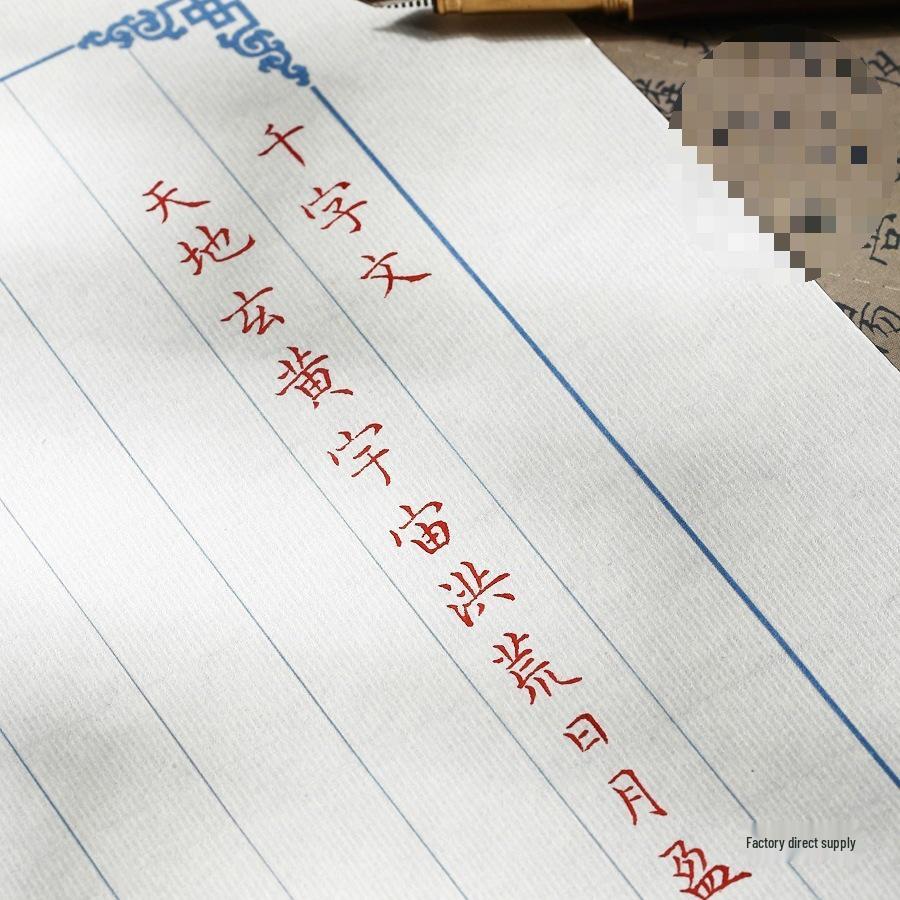 千字文
天地玄黄宇宙洪荒日月盈
Factory direct supply